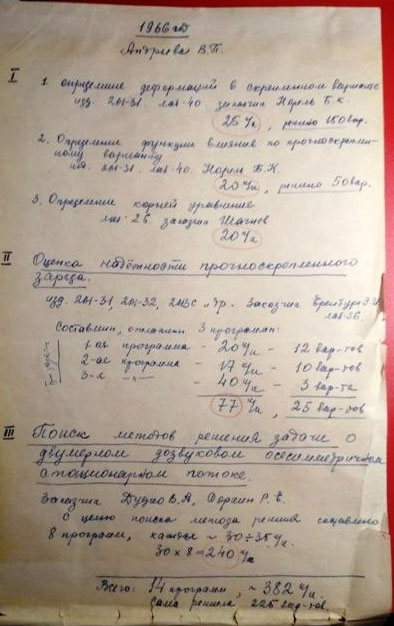 1966 год
Андреева В.П.
I
1. Определение деформаций в скрепленном варианте
изд. 201-31. лаб-40. заказчик Норель Б.К.
25 ч/м, решено 150 вар.
2. Определение функции влияния по прочноскреплен-
ному варианту
изд. 201-31. лаб-40. Норель Б.К.
20 ч/м, решено 50 вар.
3. Определение корней уравнение
лаб-26. заказчик
20 ч/м
II Оценка надёжности прочноскрепленного
заряда.
изд. 201-31, 201-32, и др. Заказчик
лаб-36.
Составлен, отлажен 3 программ:
1-ая программа - 20 ч/м - 12 вар-тов
2-ая программа - 17 ч/м - 10 вар-тов
3-я -"- - 40 ч/м - 3 вар-та
77 ч/м, 25 вар-тов
III Поиск методов решения задачи о
двумерном дозвуковом осесимметричном
стационарном потоке.
Заказчик Дудко В.А, Соркин Р.Е.
С целью поиска метода решения составлено
8 программ, каждая ~ 30÷35 ч/м.
30 x 8 = 240 ч/м
Всего: 14 программ, ~ 382 ч/м
Сама решила 225 вар-тов.